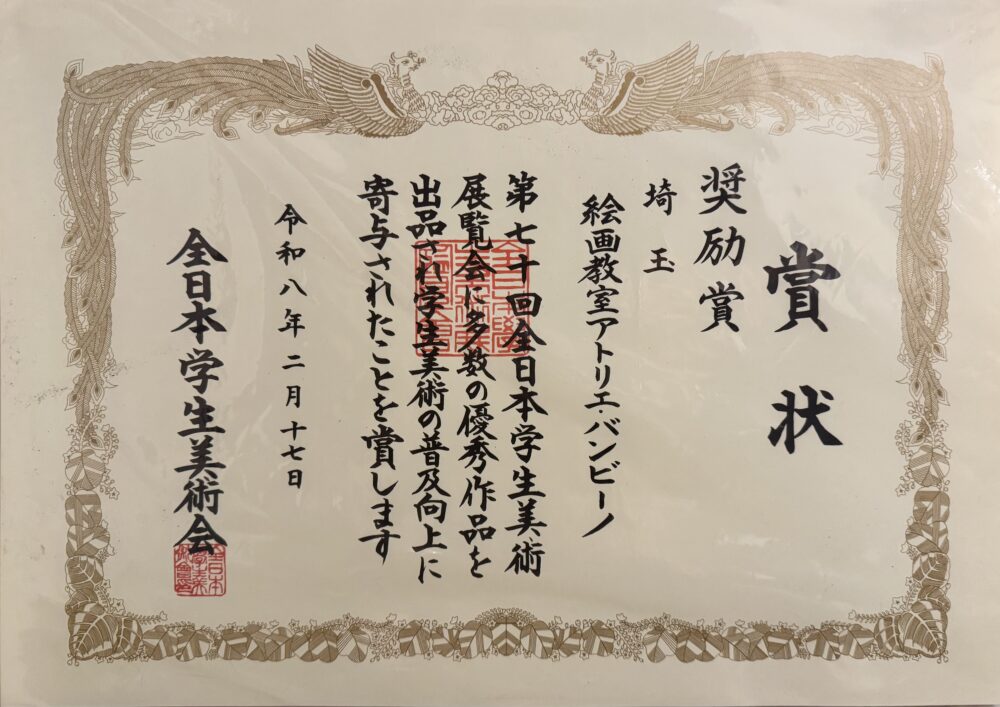 賞状
奨励賞
埼玉
絵画教室アトリエ・バンビーノ
第七十回全日本学生美術
展覧会に多数の優秀作品を
出品され学生美術の普及向上に
寄与されたことを賞します
令和八年二月十七日
全日本学生美術会